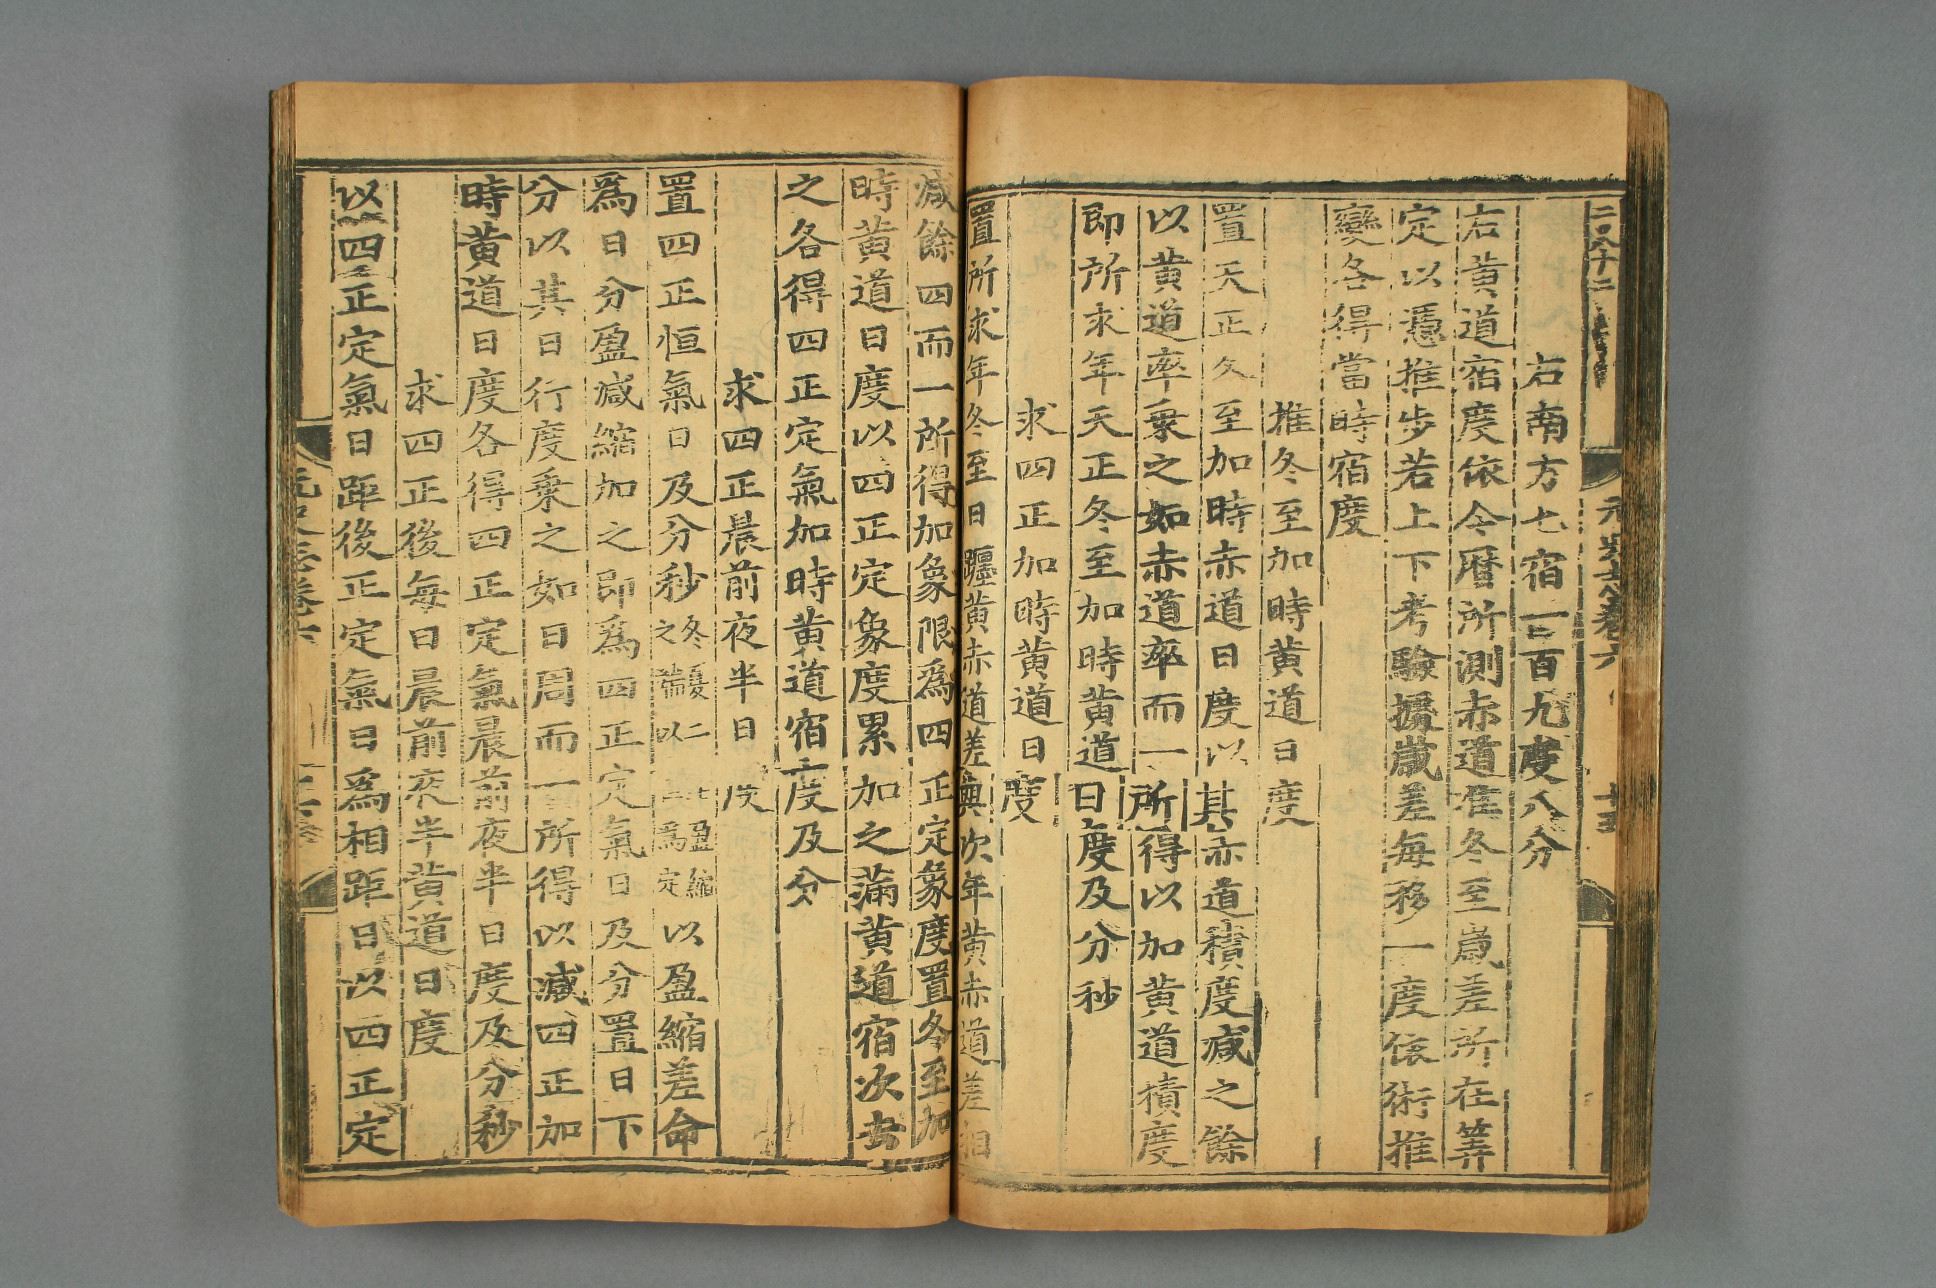 元史志卷六
十五
右南方七宿一百九度八分
右黄道宿度依今曆所測赤道准冬至嵗差所在筭
定以憑推步若上下考驗據嵗差每移一度依術推
變各得當時宿度
推冬至加時黄道日度
置天正冬至加時赤道日度以其赤道積度减之餘
以黄道率乗之如赤道率而一所得以加黄道積度
即所求年天正冬至加時黄道日度及分秒
求四正加時黄道日度
置所求年冬至日躔黄赤道差與次年黄赤道差相
减餘四而一所得加象限爲四正定象度置冬至加
時黄道日度以四正定象度累加之滿黄道宿次去
之各得四正定氣加時黄道宿度及分
求四正晨前夜半日度
置四正恒氣日及分秒冬夏二至盈縮之端以爲定以盈縮差命
爲日分盈减縮加之即爲四正定氣日及分置日下
分以其日行度乗之如日周而一所得以减四正加
時黄道日度各得四正定氣晨前夜半日度及分秒
求四正後每日晨前夜半黄道日度
以四正定氣日距後正定氣日爲相距日以四正定
元史志卷六